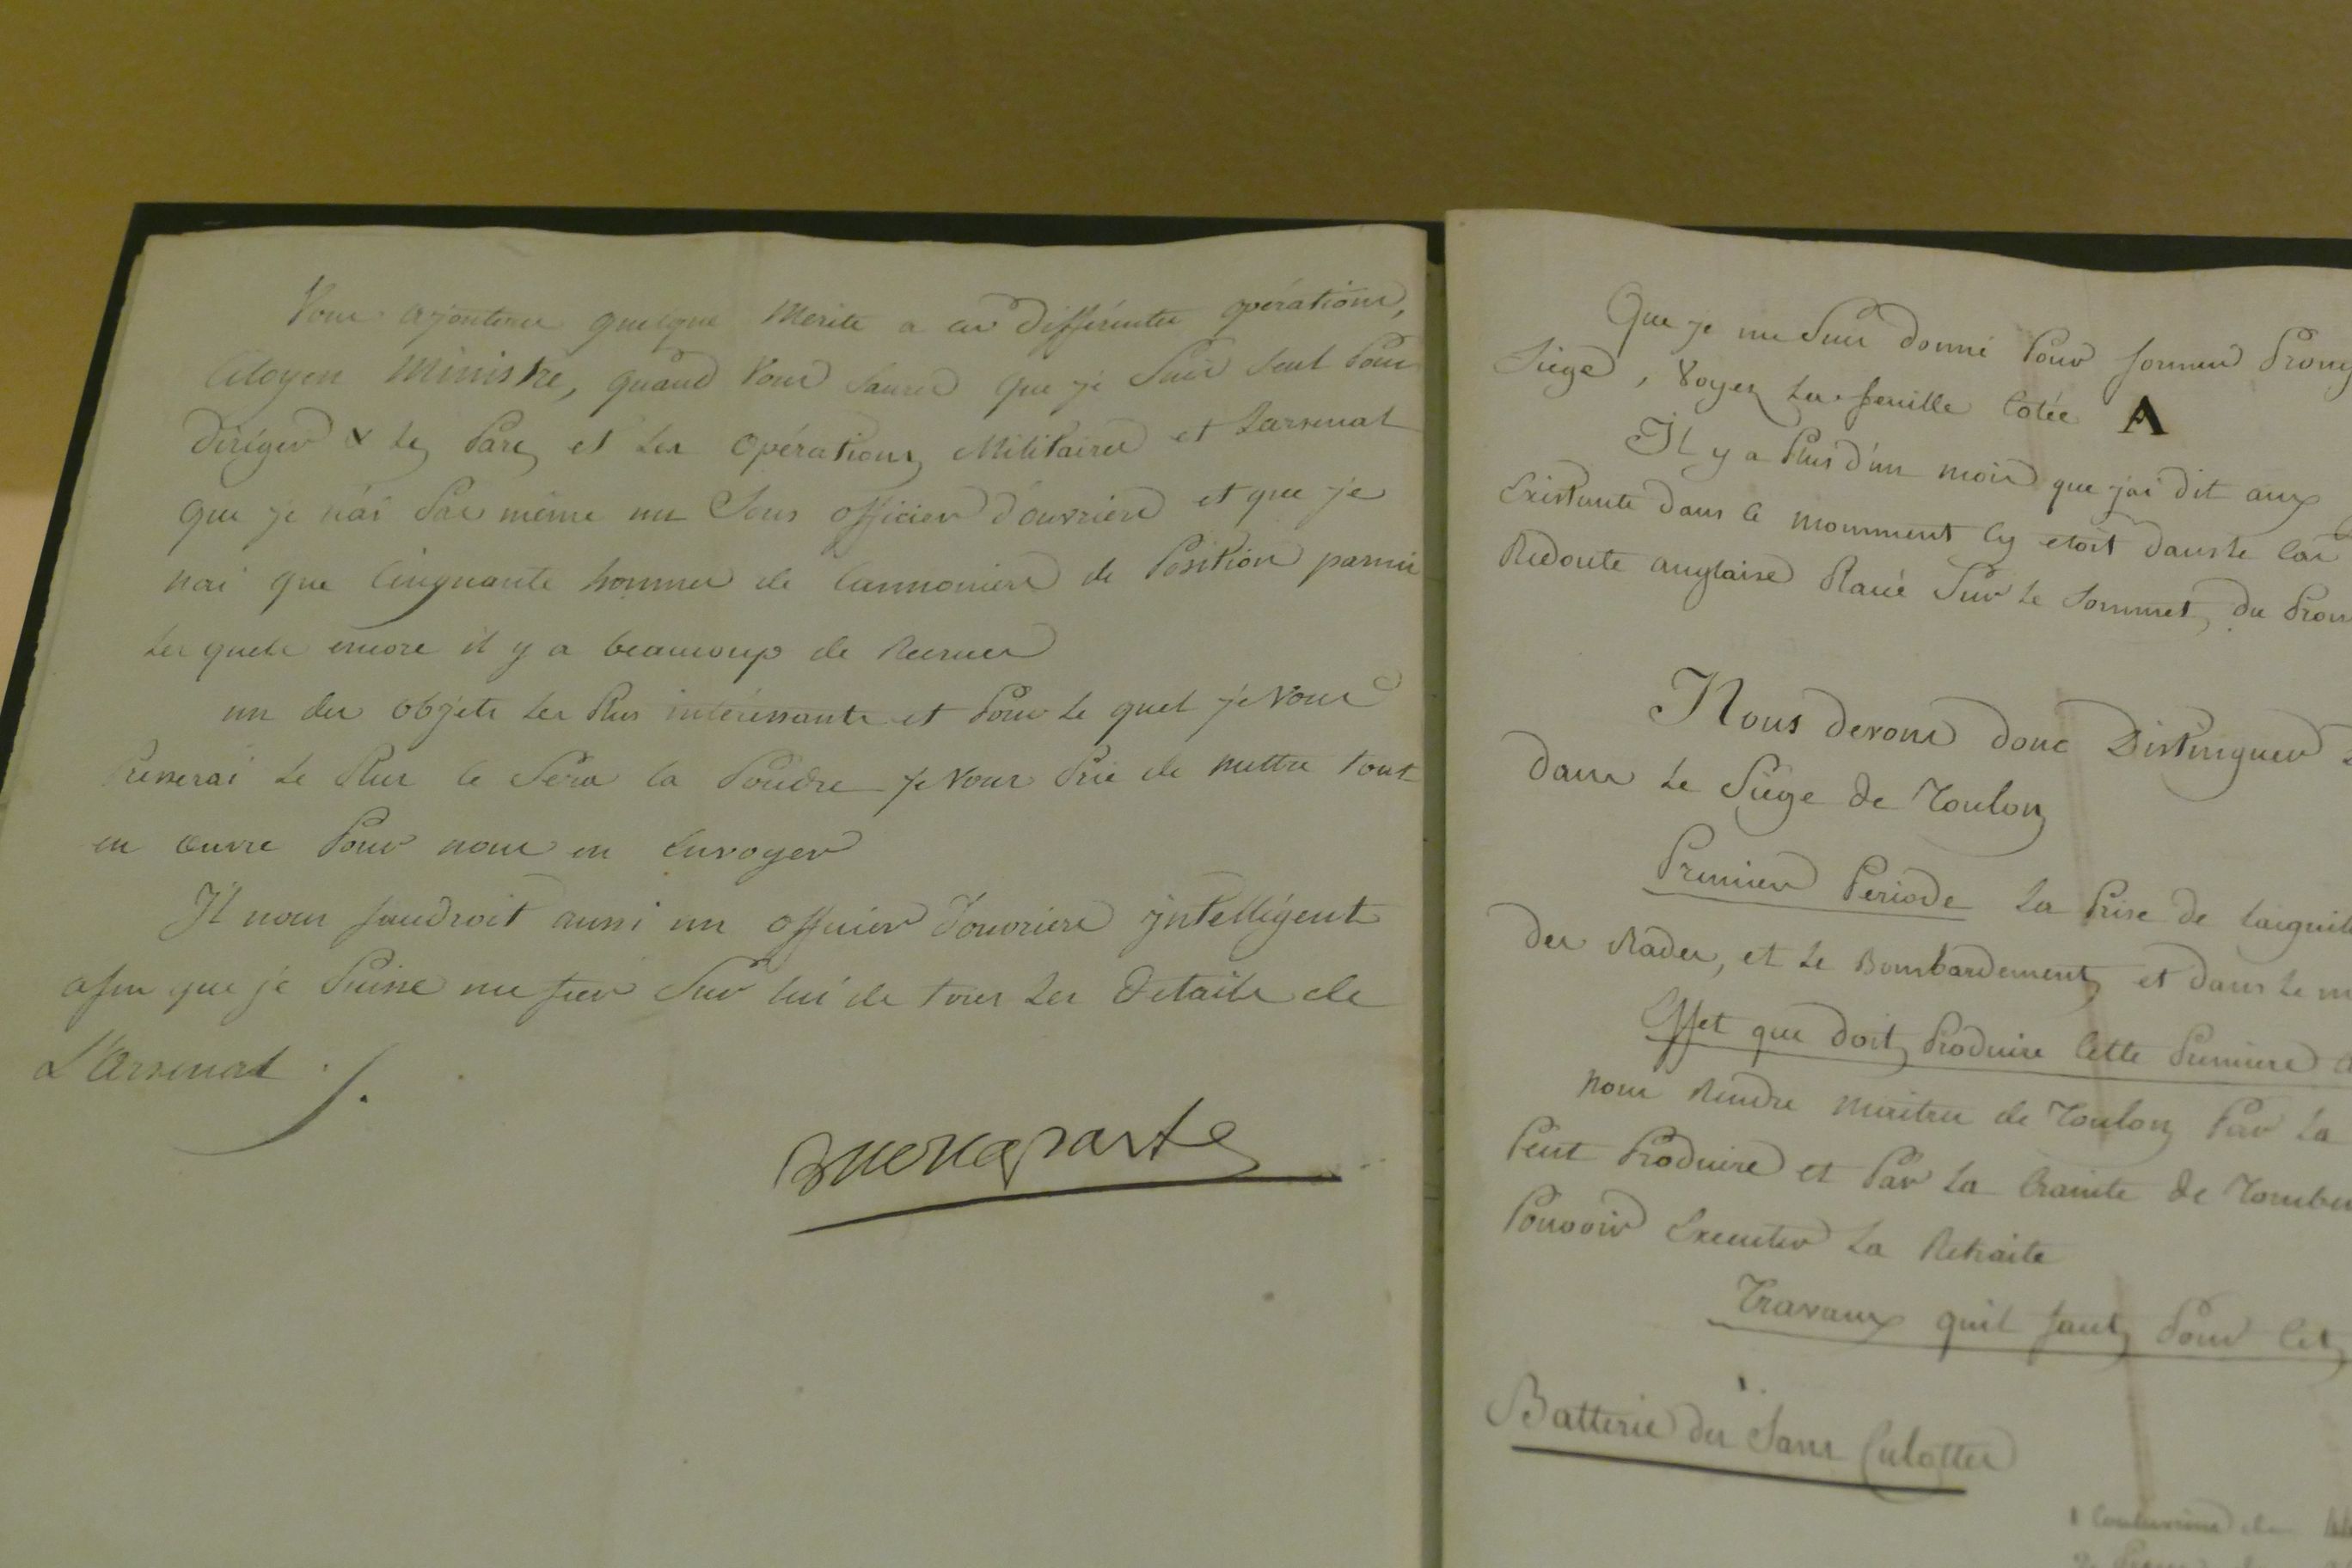 Vous ajouterez quelque Merite a ces différentes opérations,
Citoyen Ministre, quand Vous Saurez que je Suis Seul Pour
Diriger & le Parc et Les Opérations Militaires et Larsenal
que je n'ai Pas même un Sous officier d'ouvriers et que je
nai que Cinquante hommes de Cannoniers de Position parmi
Les quels encore il y a beaucoup de Recrues
un des objets Les Plus intéressants et Pour Le quel je Vous
Presserai Le Plus ce Sera la Poudre je Vous Prie de mettre tout
en œuvre Pour nous en Envoyer
Il nous faudroit aussi un officier d'ouvriers intelligent
afin que je Puisse me fier Sur lui de tous Les Details de
L'Arsenal ./.
Buonaparte
Que je me Suis donné Pour former
Siège, Voyez Les feuille Cotée A
Il y a Plus d'un mois que jai dit aux
Existante dans ce momment Cy etoit dans le Cas
Redoute anglaise Placé Sur Le Sommet, du
Nous devons donc Distinguer
dans Le Siège de Toulon
Premier Periode La Prise de
des Rades, et Le Bombardement et dans Le
Effet que doit Produire Cette Premiere
nous Rendre maitres de Toulon Par La
Peut Produire et Par La Crainte de
Pouvoir Executer La Retraite
Travaux quil faut Pour Cet
Batterie des Sans Culottes